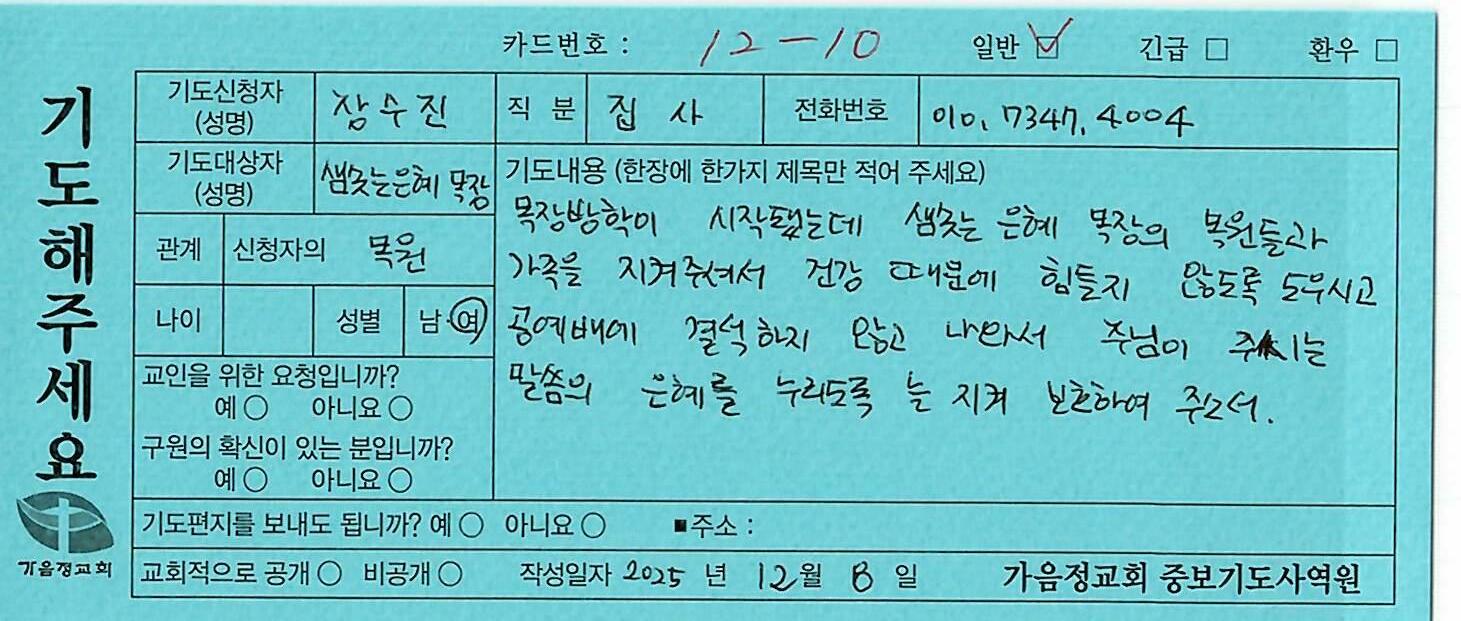 카드번호 : 12-10 일반 ☑ 긴급 □ 환우 □
기도해주세요
기도신청자 (성명) 장수진 직 분 집 사 전화번호 010. 7347. 4004
기도대상자 (성명) 샘솟는은혜 목장
기도내용 (한장에 한가지 제목만 적어 주세요)
목장방학이 시작됐는데 샘솟는 은혜 목장의 목원들과
가족을 지켜주셔서 건강 때문에 힘들지 않도록 도우시고
공예배에 결석하지 않고 나와서 주님이 주시는
말씀의 은혜를 누리도록 늘 지켜 보호하여 주소서.
관계 신청자의 목원
나이 성별 남 · 여
교인을 위한 요청입니까?
예 ○ 아니요 ○
구원의 확신이 있는 분입니까?
예 ○ 아니요 ○
기도편지를 보내도 됩니까? 예 ○ 아니요 ○ ■주소 :
교회적으로 공개 ○ 비공개 ○ 작성일자 2025 년 12월 일 가음정교회 중보기도사역원
가음정교회